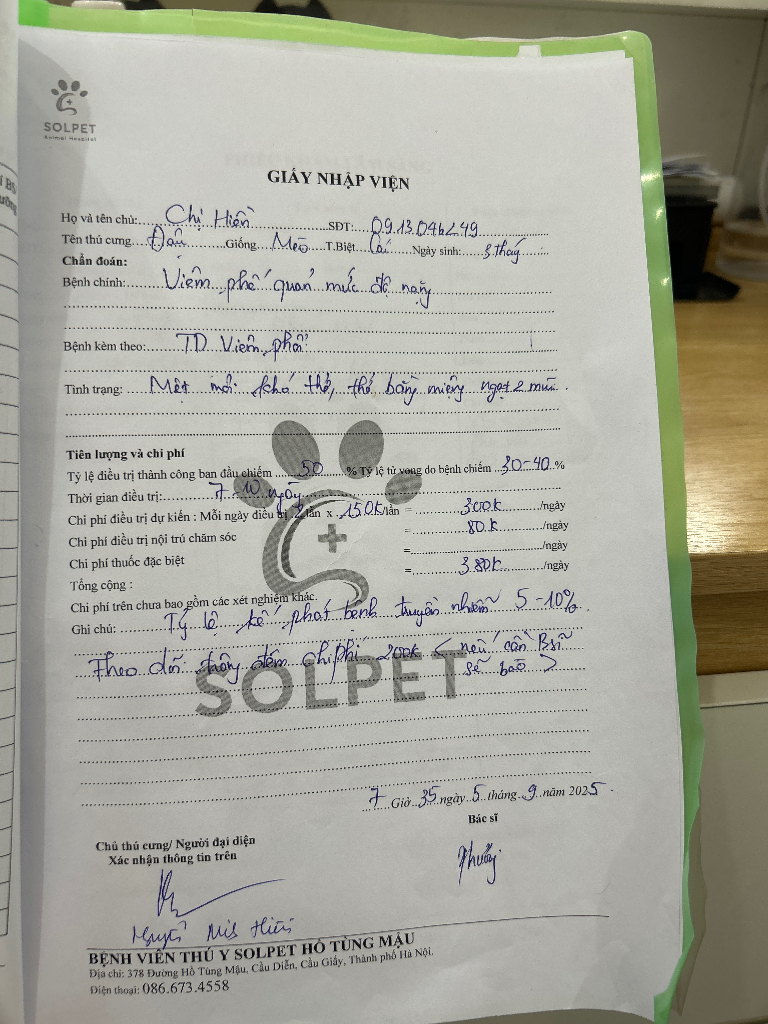 SOLPET
Animal Hospital
GIẤY NHẬP VIỆN
Họ và tên chủ: Chị Hiền SĐT: 0913046249
Tên thú cưng Đậu Giống Mèo T.Biệt Cái Ngày sinh: 3 tháy
Chẩn đoán:
Bệnh chính: Viêm phế quản mức độ nặng
Bệnh kèm theo: TD Viêm phổi
Tình trạng: Mệt mỏi khó thở, thở bằng miệng ngạt 2 mũi.
Tiên lượng và chi phí
Tỷ lệ điều trị thành công ban đầu chiếm 50 % Tỷ lệ tử vong do bệnh chiếm 30-40 %
Thời gian điều trị: 7-10 ngày
Chi phí điều trị dự kiến : Mỗi ngày điều trị 2 lần x 150k/lần = 300k /ngày
Chi phí điều trị nội trú chăm sóc = 80k /ngày
Chi phí thuốc đặc biệt = /ngày
Tổng cộng : = 380k /ngày
Chi phí trên chưa bao gồm các xét nghiệm khác.
Ghi chú: Tỷ lệ kế phát bệnh truyền nhiễm 5-10%.
Theo dõi thông đêm chi phí 200k < nếu cần Bsĩ
sẽ báo >
SOLPET
7 Giờ 35 ngày 5 tháng 9 năm 2025
Bác sĩ
Chủ thú cưng/ Người đại diện
Xác nhận thông tin trên
Phương
Nguyễn Hiền
BỆNH VIỆN THÚ Y SOLPET HỒ TÙNG MẬU
Địa chỉ: 378 Đường Hồ Tùng Mậu, Cầu Diễn, Cầu Giấy, Thành phố Hà Nội.
Điện thoại: 086.673.4558